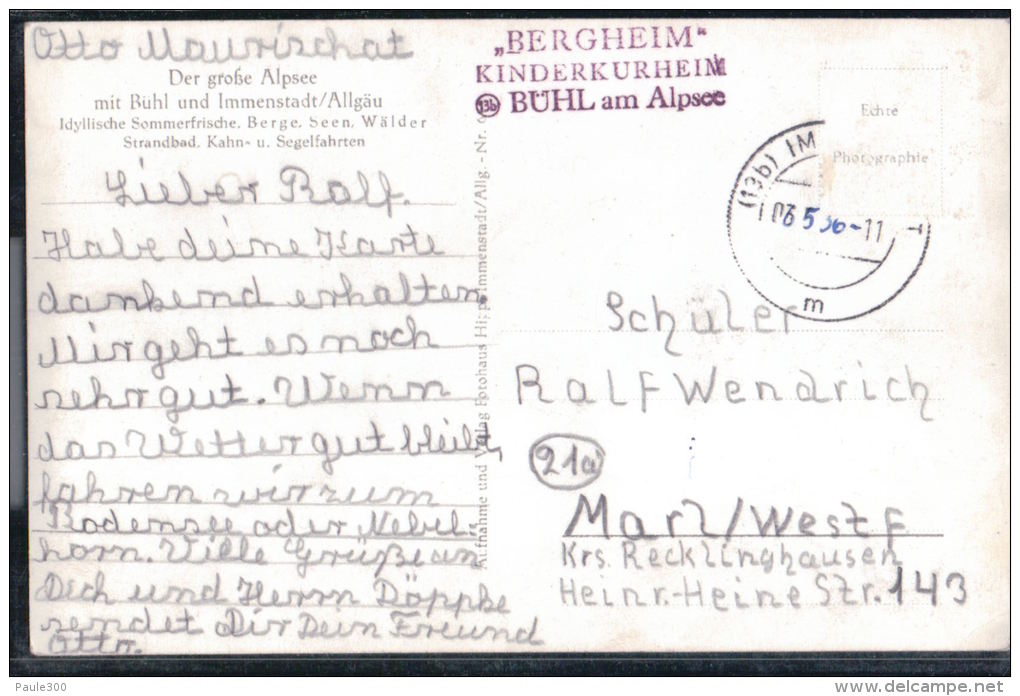 Otto Maurischat
Der große Alpsee
mit Bühl und Immenstadt/Allgäu
Idyllische Sommerfrische, Berge, Seen, Wälder
Strandbad, Kahn- u. Segelfahrten
Lieber Ralf.
Habe deine Karte
dankend erhalten.
Mir geht es noch
sehr gut. Wenn
das Wetter gut bleibt,
fahren wir zum
Bodensee oder Nebel-
horn. Viile Grüße an
Dich und Herrn Döppke
sendet Dir Dein Freund
Otto.
Aufnahme und Verlag Fotohaus Hipp, Immenstadt/Allg. - Nr.
„BERGHEIM“
KINDERKURHEIM
(13b) BÜHL am Alpsee
Echte
Photographie
(13b) IM
03 5 56-11
T
m
Schüler
Ralf Wendrich
21a
Marl/Westf
Krs. Recklinghausen
Heinr.-Heine Str. 143
Paule300
www.delcampe.net